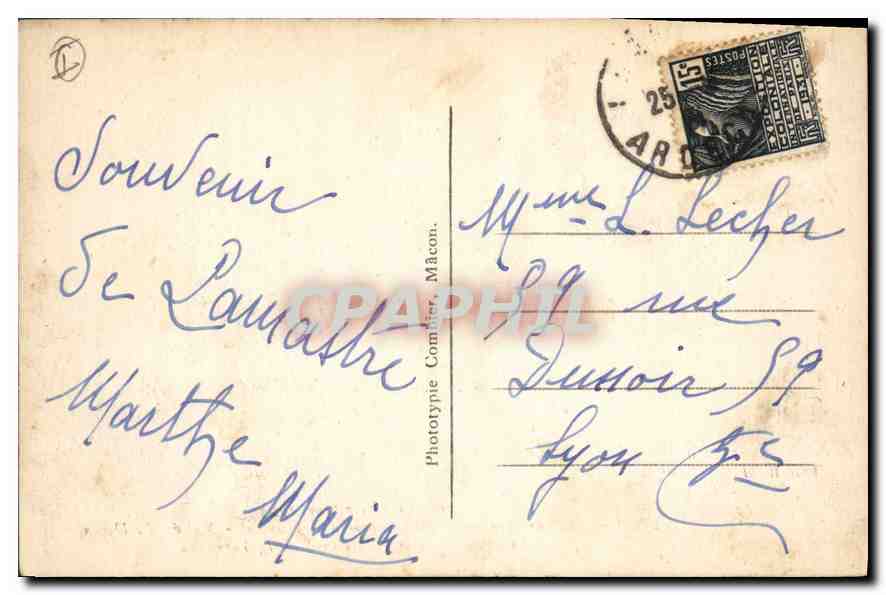 Souvenir
de Lamastre
Marthe
Maria
Phototypie Combier, Mâcon.
CPAPHIL
25
ARD
POSTES
15c
EXPOSITION
COLONIALE
INTERNATIONALE
PARIS
1931
Mme L. Lecher
59 rue
59
Lyon